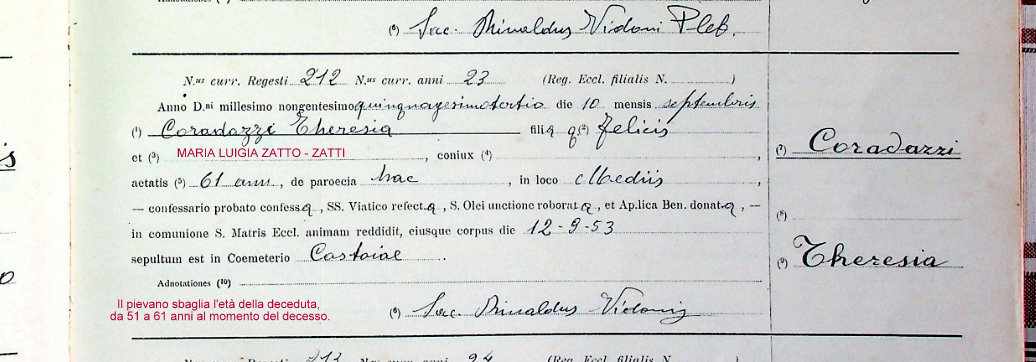 (⁶) Sac. Rinaldus Vidoni Pleb.
N.us curr. Regesti 212 N.us curr. anni 23 (Reg. Eccl. filialis N. )
Anno D.ni millesimo nongentesimo quinquagesimotertio die 10 mensis septembris
(¹) Coradazzi Theresia filia q.(²) Felicis
et (³) MARIA LUIGIA ZATTO - ZATTI , coniux (⁴) ,
aetatis (⁵) 61 ann. , de paroecia hac , in loco Mediis ,
— confessario probato confess.a , SS. Viatico refect.a , S. Olei unctione roborat a , et Ap.lica Ben. donat.a , —
in comunione S. Matris Eccl. animam reddidit, eiusque corpus die 12-9-53
sepultum est in Coemeterio Castoiae .
Adnotationes (¹⁰)
Il pievano sbaglia l'età della deceduta,
da 51 a 61 anni al momento del decesso.
(⁶) Sac. Rinaldus Vidoni
(⁷) Coradazzi
(⁸)
(⁹) Theresia
213 24 (Reg. Eccl. filialis N.